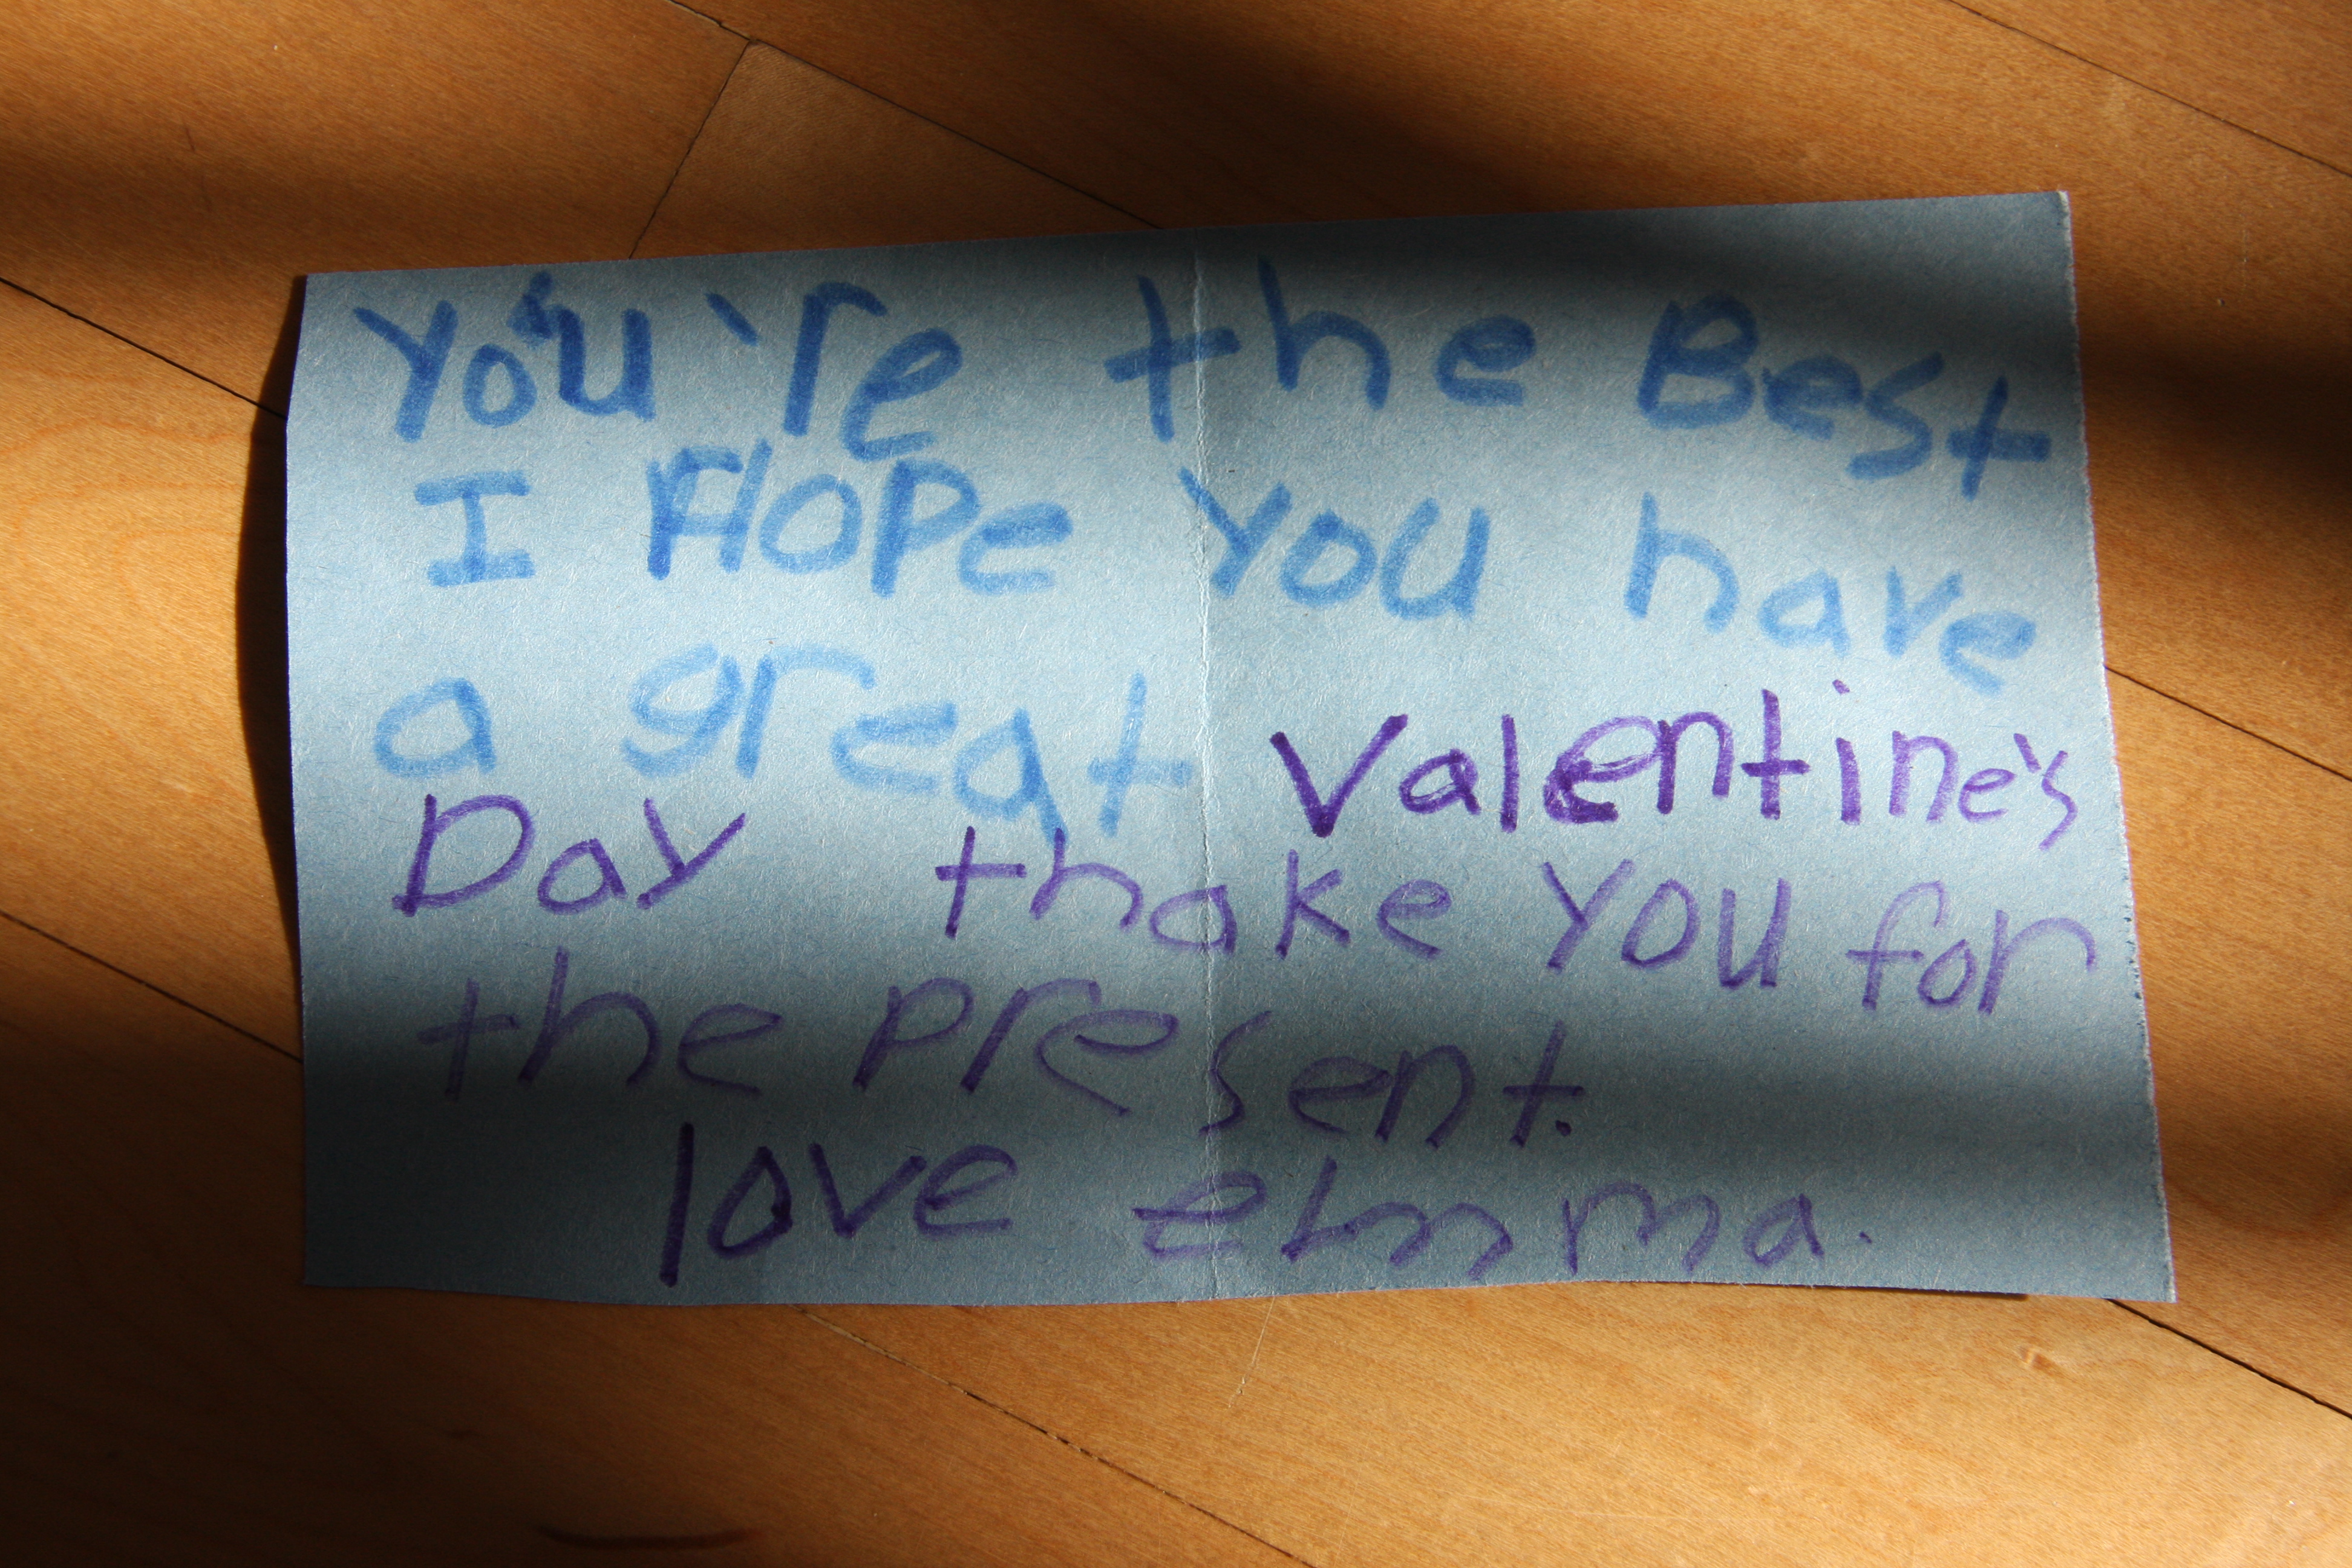 You're the Best
I HOPe you have
a great Valentine's
Day thake you for
the present.
love emma.